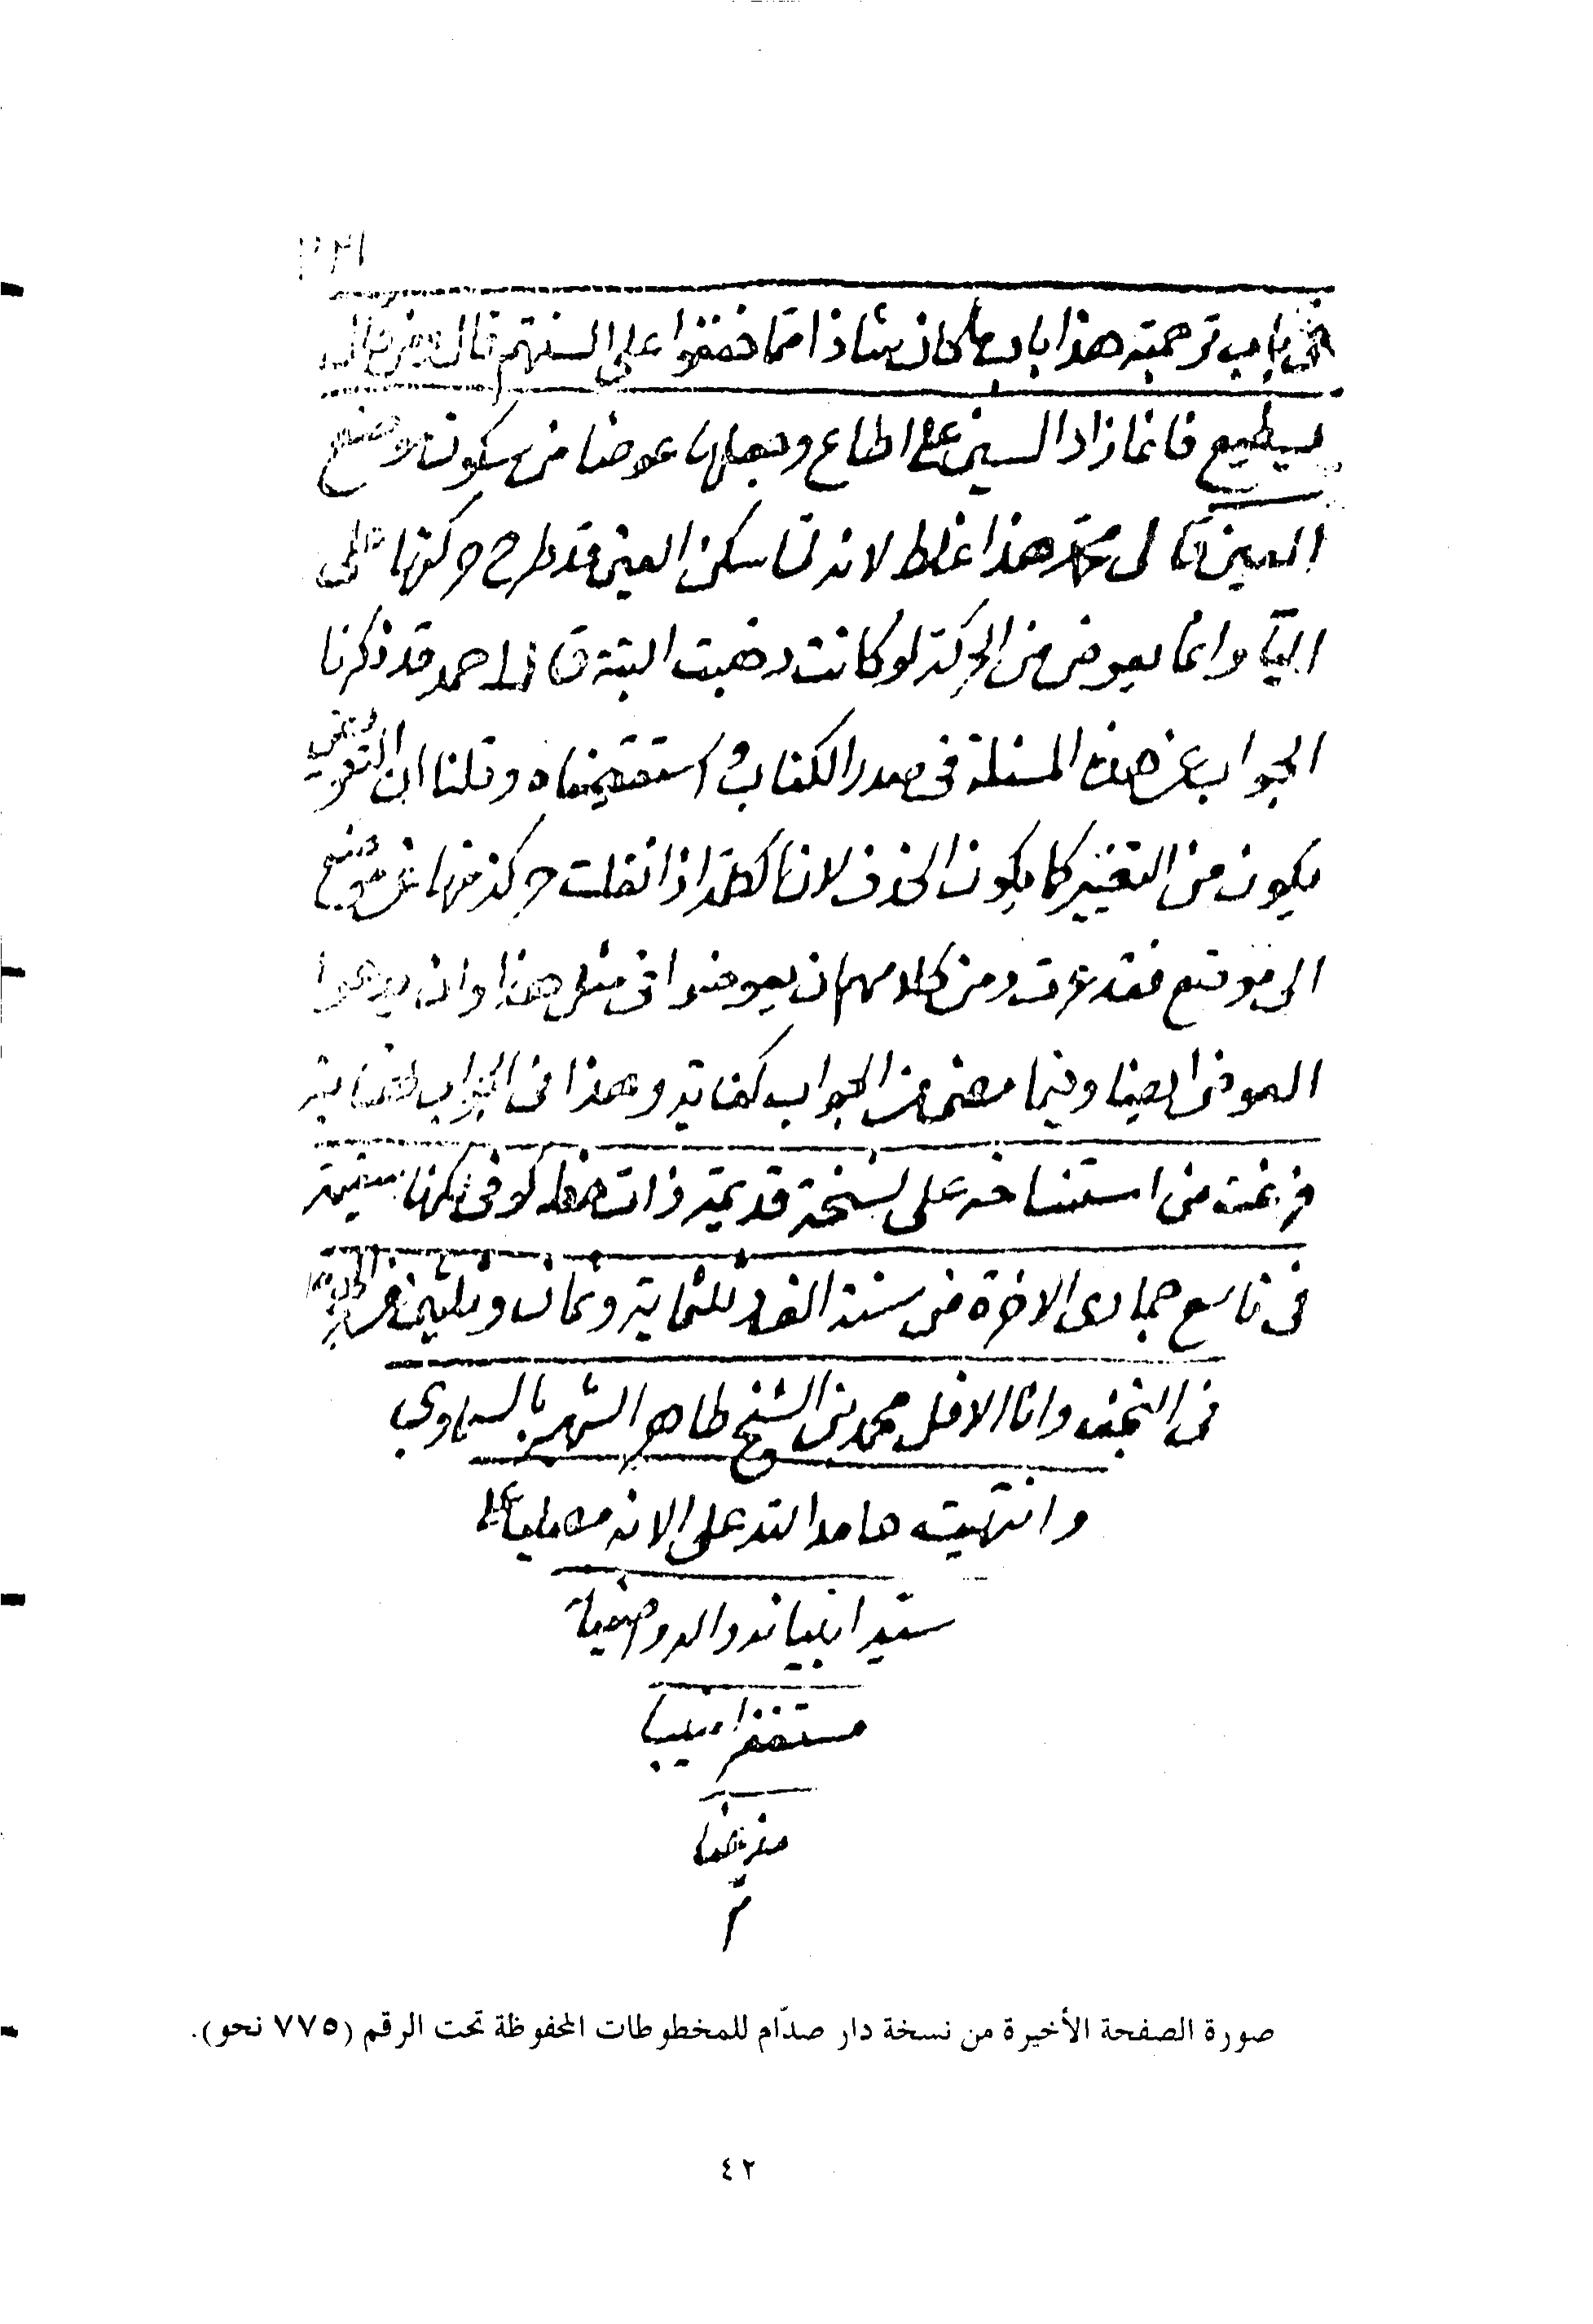 باب ترجمته هذا باب ما كان شاذا مما خففوا على السنتهم قال ومن قال
يسطيع فانما زاد السين على اطاع وجعلها عوضا من سكون موضع
العين قال محمد هذا غلط لانه لما سكن العين قد طرح حركتها على
اليا وانما يعوض من الحركة لو كانت ذهبت البتة قال احمد قد ذكرنا
الجواب عن هذه المسئلة في صدر الكتاب و استقصيناه وقلنا ان التعويض
يكون من التغيير كما يكون الحذف لان الكلمة اذا نقلت حركة منها عن موضع
الى موضع فقد غيرت ومن كلامهم ان يعوضوا في مثل هذا وان يدعوا
العوض ايضا وفيما مضى من الجواب كفاية وهذا في الجواب
فرغت من استنساخه على نسخة قديمة ذات خط كوفي لكنها سقيمة
في تاسع جمادى الاخرة من سنة الف وثلثماية وثمان وثلثين هجرية
في النجف وانا الاقل محمد بن الشيخ طاهر الشهير بالسماوي
وانتهيت حامدا لله على الائه مصليا على
سيد انبيائه واله واصفيائه
مستغفرا منيبا
تم
صورة الصفحة الأخيرة من نسخة دار صدّام للمخطوطات المحفوظة تحت الرقم (٧٧٥ نحو).
٤٢